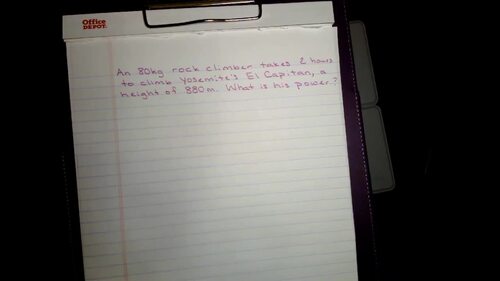 Office
DEPOT.
An 80kg rock climber takes 2 hours
to climb Yosemite's El Capitan, a
height of 880m. What is his power?